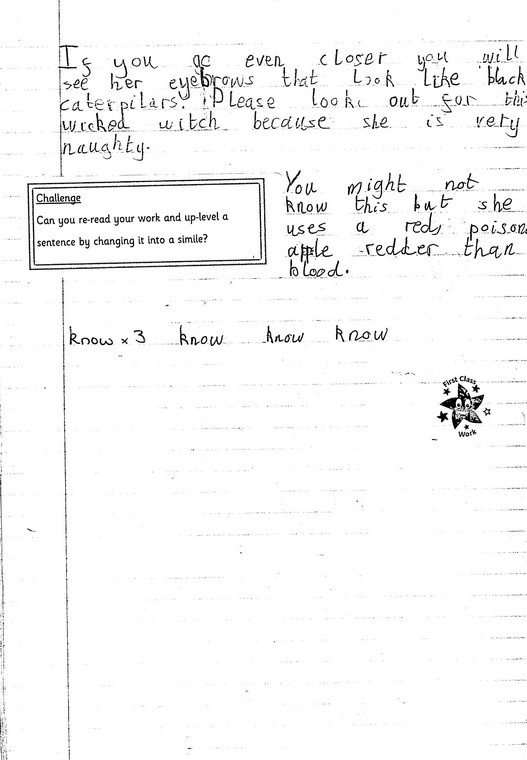 If you go even closer you will
see her eyebrows that look like black
caterpilars. Please look out for this
wicked witch because she is very
naughty.
Challenge
Can you re-read your work and up-level a
sentence by changing it into a simile?
You might not
know this but she
uses a red, poison
apple redder than
blood.
know x 3 know know know
First Class
Work